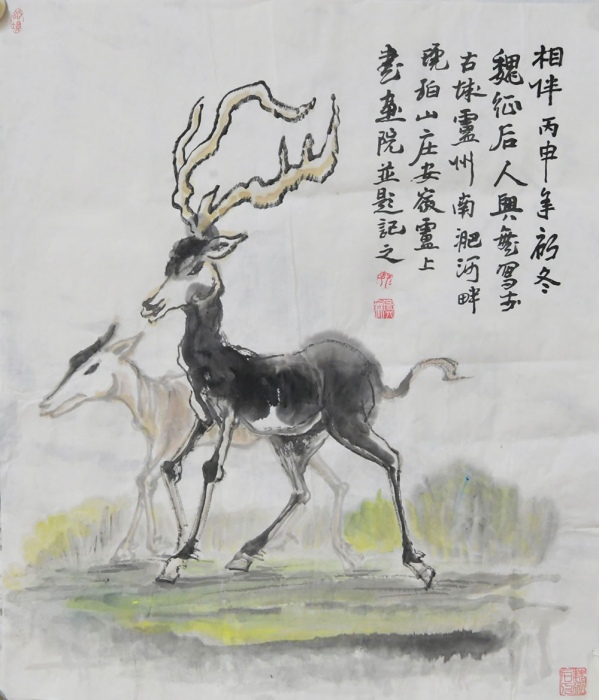 相伴丙申年初冬
魏征后人興龙写於
古城廬州南淝河畔
琥珀山庄安嶶廬上
書画院並題記之